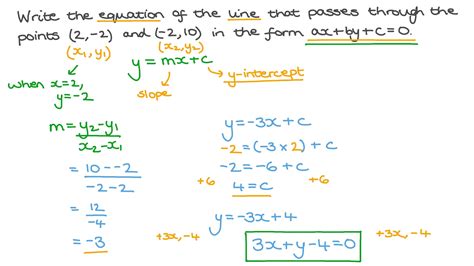 Write the equation of the line that passes through the
points (2,-2) and (-2,10) in the form ax+by+c=0.
(x₁, y₁) (x₂, y₂)
when x=2,
y=-2
y=mx+c
y-intercept
slope
m = y₂-y₁
x₂-x₁
= 10--2
-2-2
= 12
-4
= -3
y=-3x+c
-2=(-3×2)+c
-2=-6+c
+6 4=c +6
y=-3x+4
+3x,-4 3x+y-4=0 +3x,-4